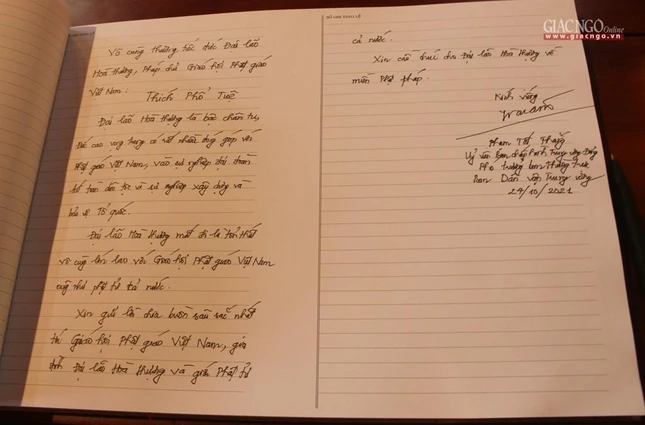 Vô cùng thương tiếc Đức Đại lão
Hòa thượng, Pháp chủ Giáo hội Phật giáo
Việt Nam:
Thích Phổ Tuệ
Đại lão Hòa thượng là bậc chân tu,
có rất nhiều đóng góp với
Phật giáo Việt Nam, vào sự nghiệp đại đoàn
kết dân tộc và sự nghiệp xây dựng và
bảo vệ Tổ quốc.
Đại lão Hòa thượng mất đi là tổn thất
vô cùng lớn lao với Giáo hội Phật giáo Việt Nam
cũng như phật tử cả nước.
Xin gửi lời chia buồn sâu sắc nhất
tới Giáo hội Phật giáo Việt Nam, gia
đình Đại lão Hòa thượng và Phật tử
SỔ GHI TANG LỄ
cả nước.
Xin cầu chúc cho Đại lão Hòa thượng về
miền Phật pháp.
Kính viếng
Phan Tất Thắng
Uỷ viên Ban chấp hành Trung ương Đảng
Phó trưởng ban Thường trực
Ban Dân vận Trung ương
24/10/2021
GIACNGO Online
www.giacngo.vn